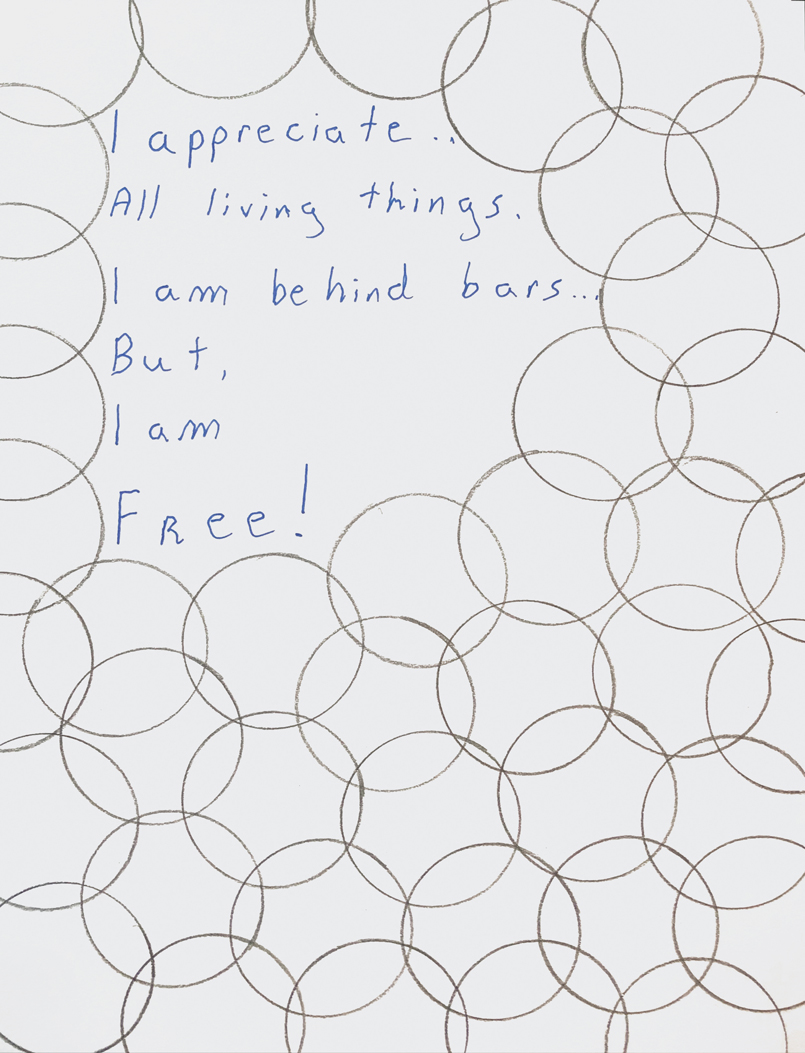 I appreciate..
All living things.
I am behind bars...
But,
I am
FRee!